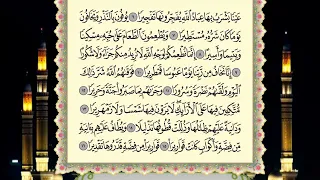 عَيْنًا يَشْرَبُ بِهَا عِبَادُ اللَّهِ يُفَجِّرُونَهَا تَفْجِيرًا ۝٦ يُوفُونَ بِالنَّذْرِ وَيَخَافُونَ
يَوْمًا كَانَ شَرُّهُ مُسْتَطِيرًا ۝٧ وَيُطْعِمُونَ الطَّعَامَ عَلَىٰ حُبِّهِ مِسْكِينًا
وَيَتِيمًا وَأَسِيرًا ۝٨ إِنَّمَا نُطْعِمُكُمْ لِوَجْهِ اللَّهِ لَا نُرِيدُ مِنكُمْ جَزَاءً وَلَا شُكُورًا
۝٩ إِنَّا نَخَافُ مِن رَّبِّنَا يَوْمًا عَبُوسًا قَمْطَرِيرًا ۝١٠ فَوَقَاهُمُ اللَّهُ شَرَّ ذَٰلِكَ
الْيَوْمِ وَلَقَّاهُمْ نَضْرَةً وَسُرُورًا ۝١١ وَجَزَاهُم بِمَا صَبَرُوا جَنَّةً وَحَرِيرًا ۝١٢
مُّتَّكِئِينَ فِيهَا عَلَى الْأَرَائِكِ لَا يَرَوْنَ فِيهَا شَمْسًا وَلَا زَمْهَرِيرًا ۝١٣
وَدَانِيَةً عَلَيْهِمْ ظِلَالُهَا وَذُلِّلَتْ قُطُوفُهَا تَذْلِيلًا ۝١٤ وَيُطَافُ عَلَيْهِم بِآنِيَةٍ
مِّن فِضَّةٍ وَأَكْوَابٍ كَانَتْ قَوَارِيرَا ۝١٥ قَوَارِيرَ مِن فِضَّةٍ قَدَّرُوهَا تَقْدِيرًا ۝١٦